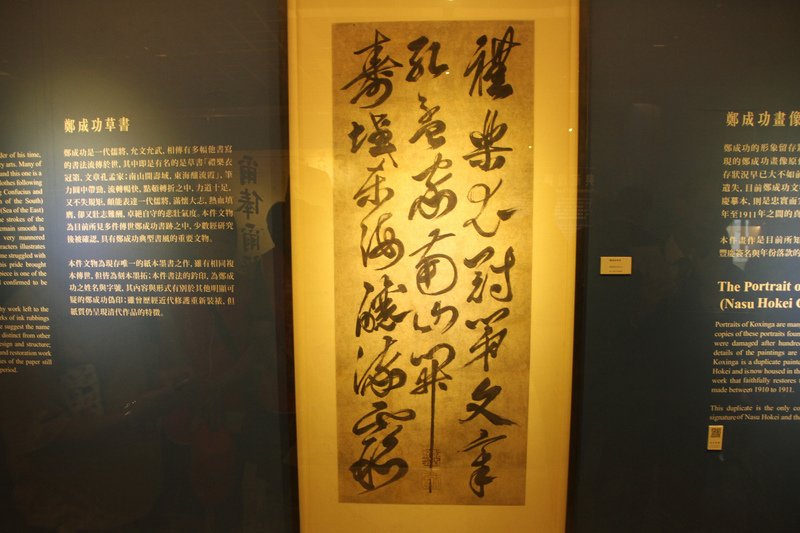 der of his time,
ry arts. Many of
and this one is a
lothes following
ng Confucius and
n of the South)
(Sea of the East)
he strokes of the
emain smooth in
very mannered
racters illustrates
me struggled with
his pride brought
piece is one of the
l confirmed to be
hy work left to the
rks of ink rubbings
e suggest the name
distinct from other
esign and structure;
and restoration work
es of the paper still
period.
鄭成功草書
鄭成功是一代儒將，允文允武，相傳有多幅他書寫
的書法流傳於世，其中即是有名的是草書「禮樂衣
冠第，文章孔孟家；南山開壽域，東海釀流霞」，筆
力圓中帶勁，流轉暢快，點頓轉折之中，力道十足，
又不失規矩，頗能表達一代儒將，滿懷大志，熱血填
膺，卻又壯志難酬，卓絕自守的悲壯氣度。本件文物
為目前所見多件傳世鄭成功書跡之中，少數經研究
後被確認，具有鄭成功典型書風的重要文物。
本件文物為現存唯一的紙本墨書之作，雖有相同複
本傳世，但皆為刻本墨拓；本件書法的鈐印，為鄭成
功之姓名與字號，其內容與形式有別於其他明顯可
疑的鄭成功偽印；雖曾歷經近代修護重新裝裱，但
紙質仍呈現清代作品的特徵。
禮樂衣冠第文章
孔孟家南山開
壽域東海釀流霞
鄭成功畫像
鄭成功的形象留存
現的鄭成功畫像原
存狀況早已大不如前
遺失，目前鄭成功文
慶摹本，則是忠實而
年至1911年之間的真
本件畫作是目前所知
豐慶簽名與年份落款的
The Portrait o
(Nasu Hokei C
Portraits of Koxinga are man
copies of these portraits foun
were damaged after hundre
details of the paintings are
Koxinga is a duplicate painte
Hokei and is now housed in th
work that faithfully restores t
made between 1910 to 1911.
This duplicate is the only co
signature of Nasu Hokei and th